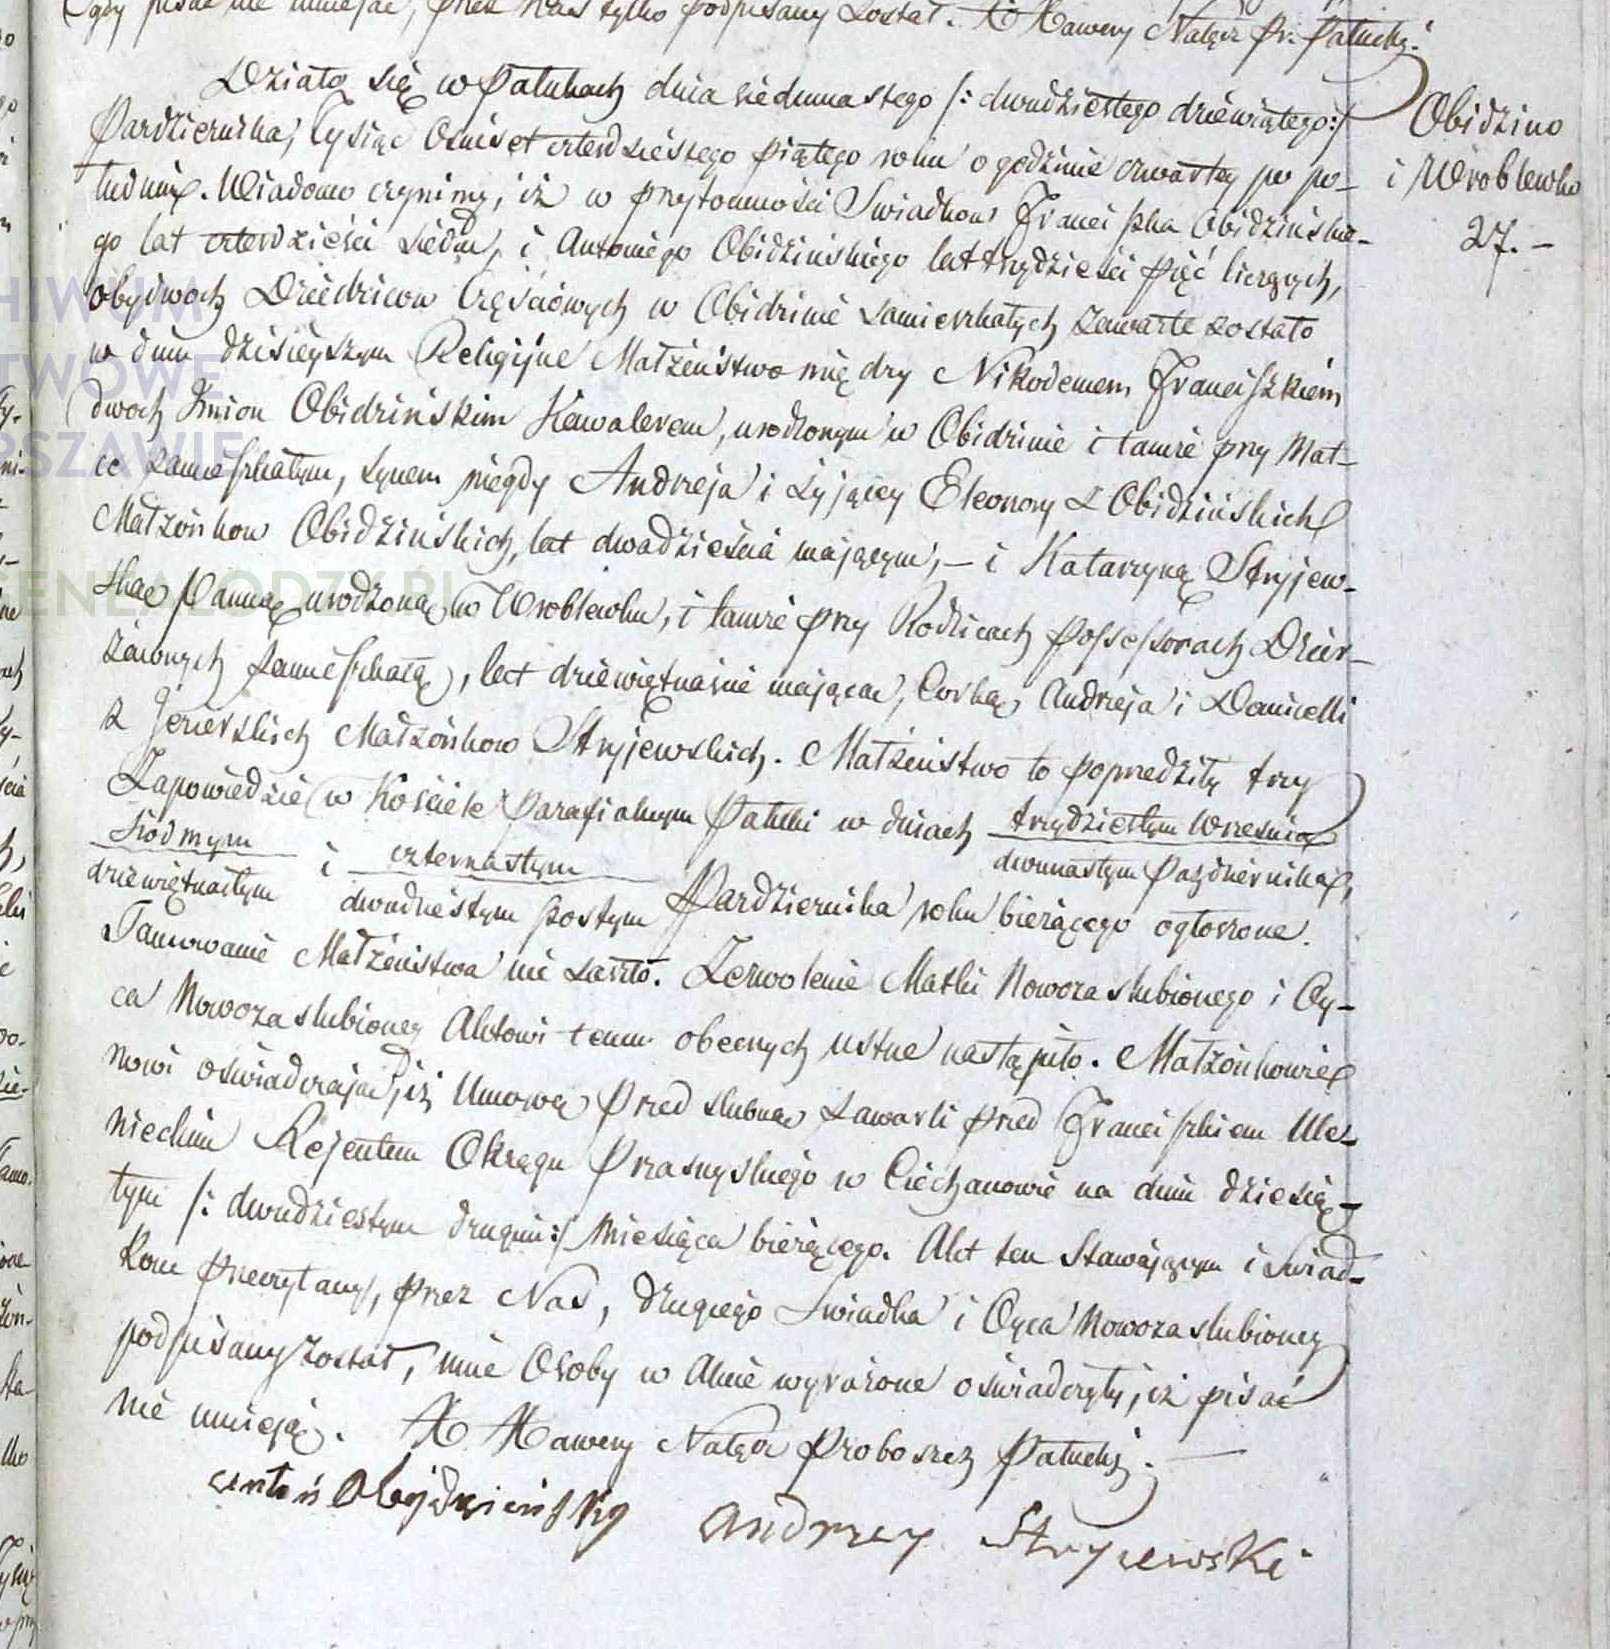 gdy pisać nie umiejąc, przez Nas tylko podpisany został. X Xawery Nałęcz Pr. Pałucky.
Obidzino
i Wroblewko
27. –
Działo się w Pałukach dnia siedmnastego /: dwudziestego dziewiątego :/
Pazdziernika, Tysiąc Osmset czterdziestego piątego roku o godzinie czwartey po po-
łudniu. Wiadomo czynimy, iż w przytomności Swiadkow Franciszka Obidzińskie-
go lat czterdzieści siedm, i Antoniego Obidzińskiego lat trzydzieści pięć liczących,
obydwoch Dziedzicow Częściowych w Obidzinie zamieszkałych zawarte zostało
w dniu dzisieyszym Religijne Małżeństwo między Nikodemem Franciszkiem
dwoch Imion Obidzińskim Kawalerem, urodzonym w Obidzinie i tamże przy Mat-
ce zamieszkałym, synem niegdy Andrzeja i żyjącey Eleonory z Obidzińskich
Małżonkow Obidzińskich, lat dwadzieścia mającym, – i Katarzyną Stryjew-
ską Panną urodzoną w Wroblewku, i tamże przy Rodzicach Possessorach Dzier-
żawnych zamieszkałą, lat dziewiętnaście mającą, Corką Andrzeja i Danielli
z Jezierskich Małżonkow Stryjewskich. Małżeństwo to poprzedziły trzy
Zapowiedzie w Kościele Parafialnym Pałuki w dniach trzydziestym Września
dwunastym Pazdziernika,
siodmym i czternastym
dziewiętnastym dwudziestym szostym Pazdziernika roku bieżącego ogłoszone.
Tamowanie Małżeństwa nie zaszło. Zezwolenie Matki Nowozaslubionego i Oy-
ca Nowozaslubioney Aktowi temu obecnych ustne nastąpiło. Małżonkowie
nowi oświadczają, iż Umowę Przedslubną zawarli przed Franciszkiem
Rejentem Okręgu Przasnyskiego w Ciechanowie na dniu dziesią-
tym /: dwudziestym drugim :/ Miesiąca bieżącego. Akt ten Stawającym i Swiad-
kom przeczytany, przez Nas, drugiego Swiadka i Oyca Nowozaslubioney
podpisany został, inne Osoby w Akcie wyrażone oświadczyły, iż pisać
nie umieją. X Xawery Nałęcz Proboszcz Pałucky. –
antoń Obydziński Andrzey Stryiewski